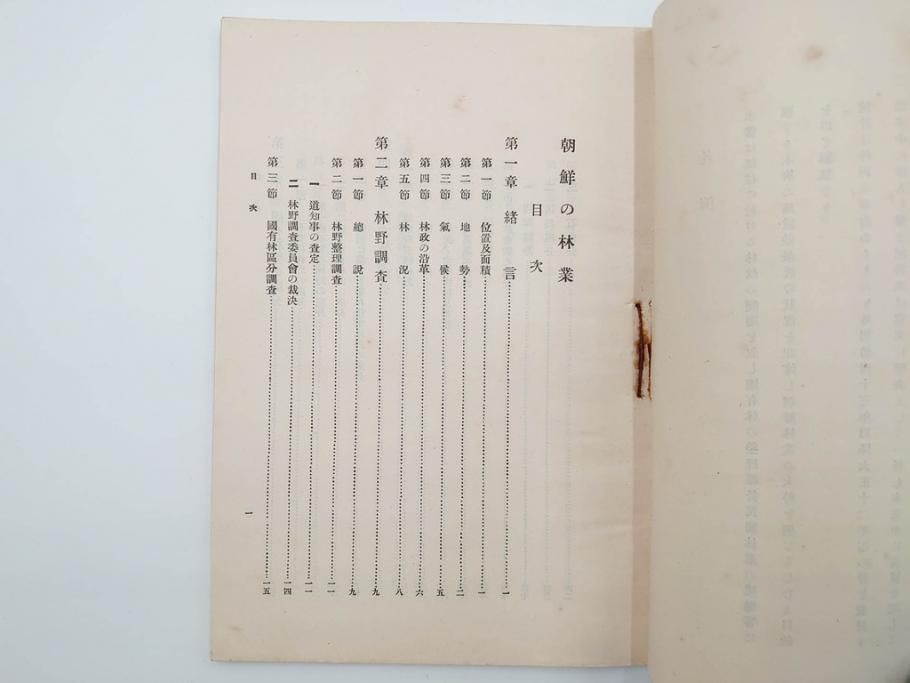 朝鮮の林業
目次
第一章 緒言……一
第一節 位置及面積……一
第二節 地勢……二
第三節 氣候……五
第四節 林政の沿革……六
第五節 林況……八
第二章 林野調査……九
第一節 總說……九
第二節 林野整理調査……一一
一 道知事の査定……一一
二 林野調査委員會の裁決……一四
第三節 國有林區分調査……一五
目次
一